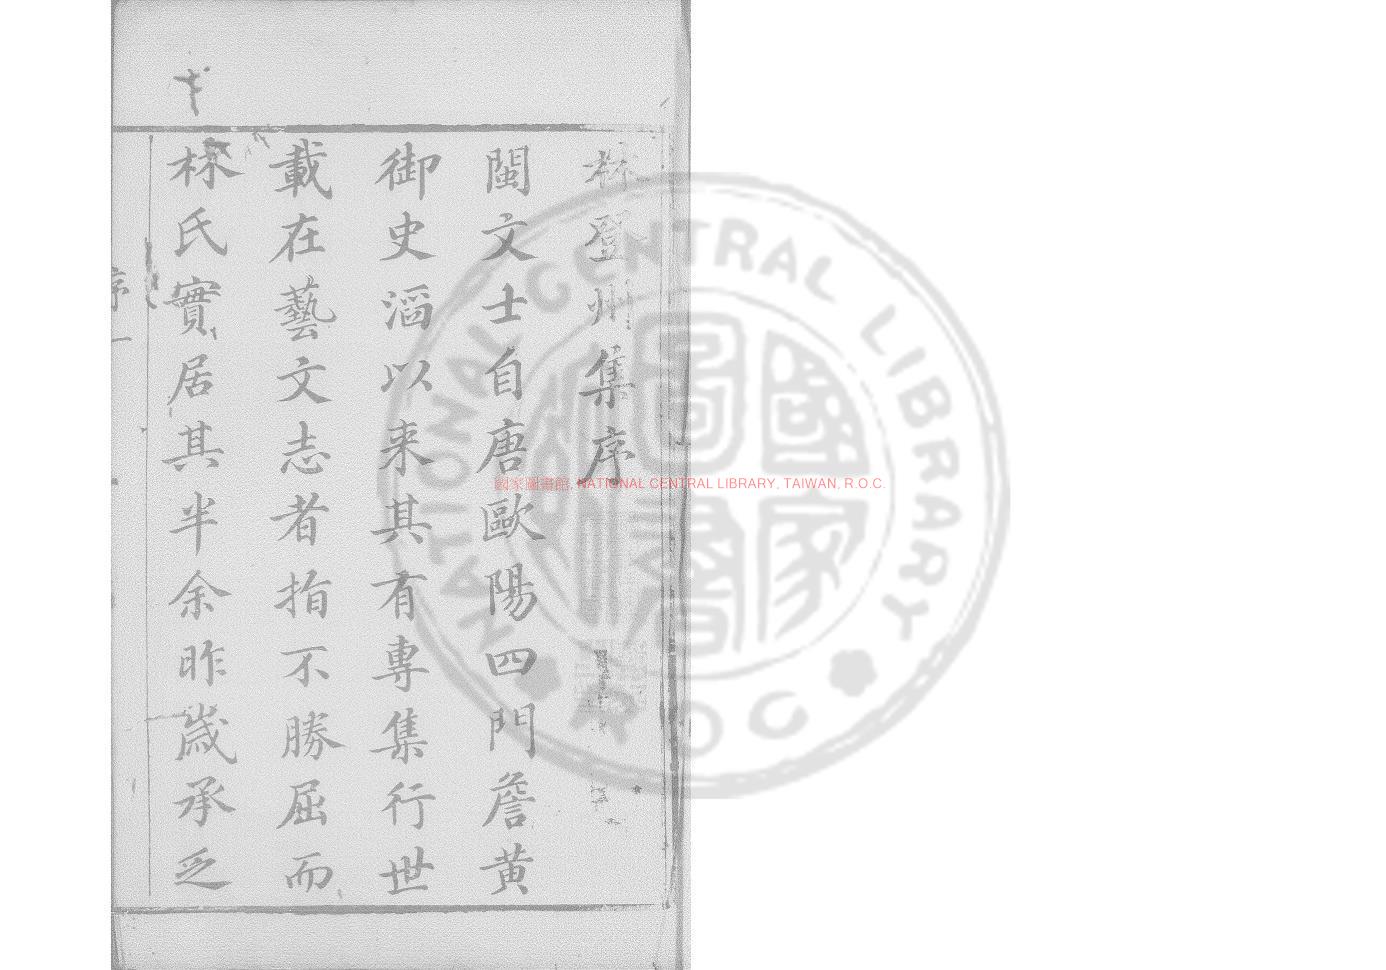 林登州集序
閩文士自唐歐陽四門詹黄
御史滔以来其有專集行世
載在藝文志者指不勝屈而
林氏實居其半余昨嵗承乏
序 一
國家圖書館, NATIONAL CENTRAL LIBRARY, TAIWAN, R.O.C.
NATIONAL CENTRAL LIBRARY
R.O.C.
國家圖書